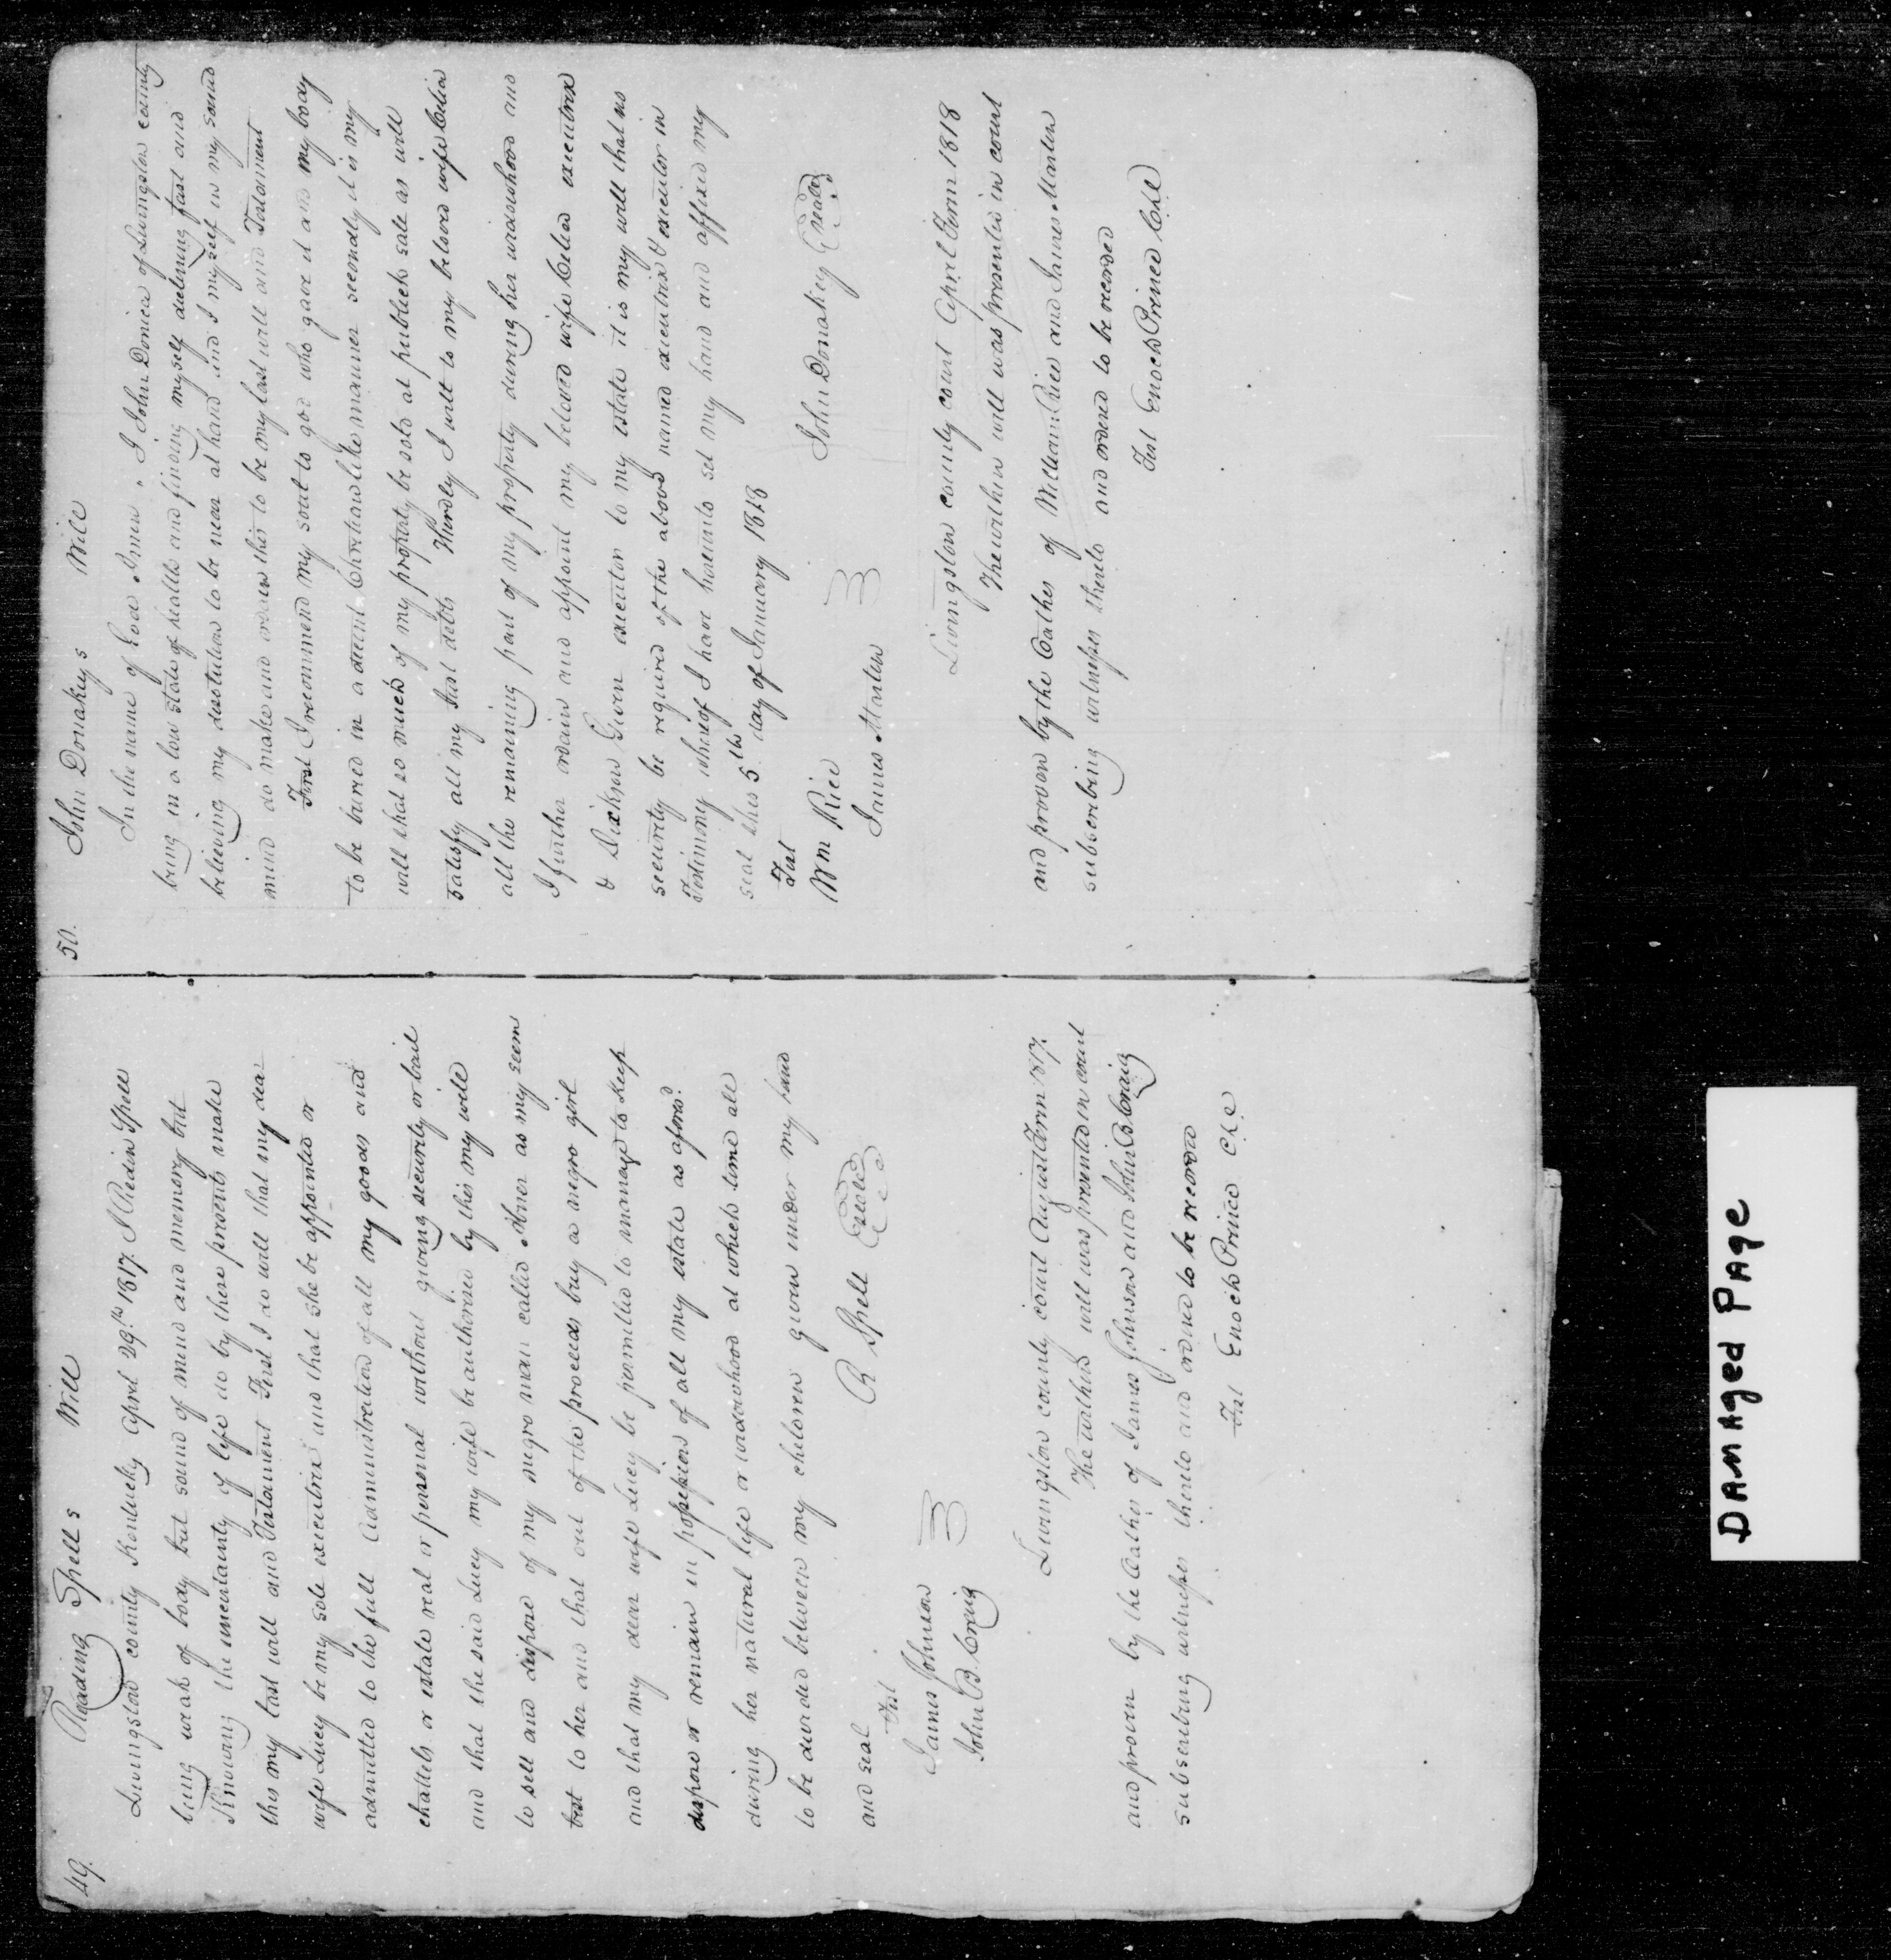 49. Reading Spells Will
Livingston county Kentucky April 29th 1817. I Redin Spell
being weak of body but sound of mind and memory but
Knowing the uncertainty of life do by these presents make
this my last will and Testament First I do will that my dear
wife Lucy be my sole executrix and that she be appointed or
admitted to the full administration of all my goods and
chattels or estate real or personal without giving security or bail
and that the said Lucy my wife be authorised by this my will
to sell and dispose of my negro man called Abner as my seem
best to her and that out of the proceeds buy a negro girl
and that my dear wife Lucy be permitted to manage to keep
dispose or remain in possession of all my estate as aforesd.
during her natural life or widowhood at which time all
to be divided between my children given under my hand
and seal R Spell (seal)
Test
James Johnson
John B. Craig
Livingston county court August Term 1817.
The within will was presented in court
and proven by the oathes of James Johnson and John B. Craig
subscribing witnesses thereto and ordered to be recorded
Test Enoch Prince Clk
50. John Donakeys Will
In the name of God Amen. I John Donica of Livingston county
being in a low state of health and finding myself declining fast and
believing my desolution to be near at hand and I my self in my sound
mind do make and ordain this to be my last will and Testament
First I recommend my soul to god who gave it and my body
to be buried in a decent Christian like manner secondly it is my
will that so much of my property be sold at publick sale as will
satisfy all my just debts Thirdly I will to my beloved wife Celia
all the remaining part of my property during her widowhood and
I further ordain and appoint my beloved wife Celia executrix
& Dickson Given executor to my estate it is my will that no
security be required of the above named executrix & executor in
Testimony whereof I have hereunto set my hand and affixed my
seal this 5th day of January 1818
Test John Donakey (seal)
Wm Rice
James Marten
Livingston county court April Term 1818
The within will was presented in court
and proven by the Oathes of William Rice and James Marten
subscribing witnesses thereto and ordered to be recorded
Test Enoch Prince Clk
DAMAged PAge